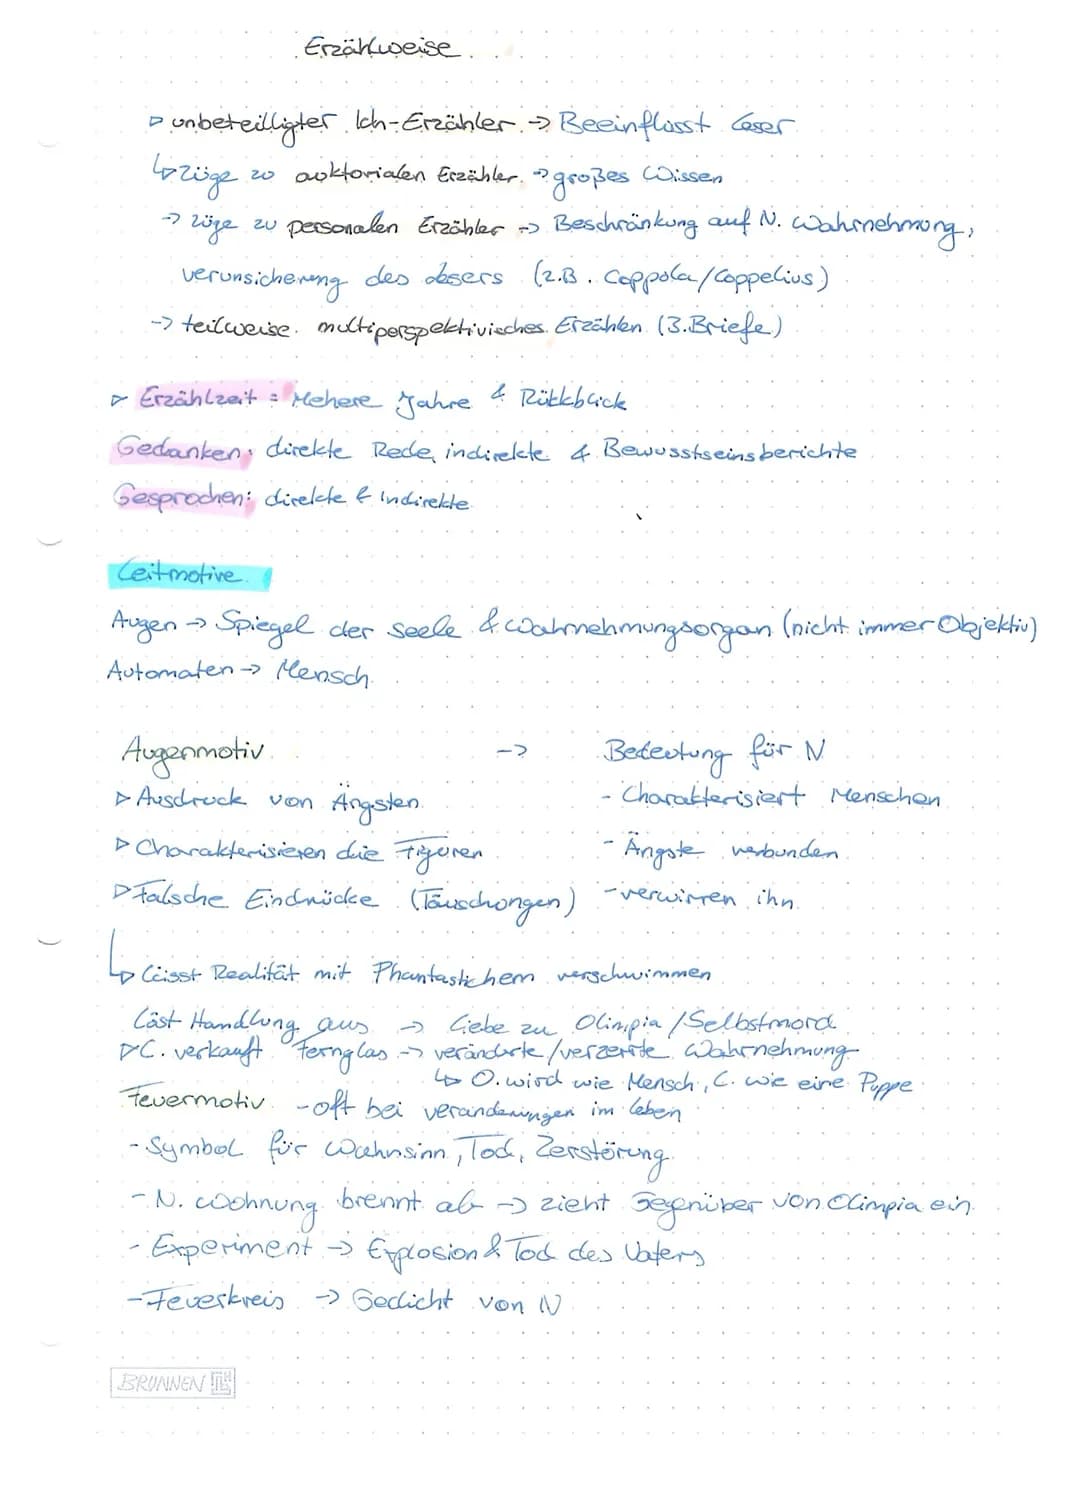 Erzählweise
▷ unbeteilligter Ich-Erzähler → Beeinflusst Leser
↳ Züge zu auktorialen Erzähler → großes Wissen
→ züge zu personalen Erzähler → Beschränkung auf N. Wahrnehmung,
verunsicherung des lesers (z.B. Coppola/Coppelius)
→ teilweise multiperspektivisches Erzählen (3.Briefe)
▷ Erzählzeit: Mehere Jahre & Rükkblick
Gedanken: direkte Rede, indirekte & Bewusstseinsberichte
Gesprochen: direkte & indirekte
Leitmotive
Augen → Spiegel der Seele & Wahrnehmungsorgan (nicht immer Objektiv)
Automaten → Mensch
Augenmotiv → Bedeutung für N
▷ Ausdruck von Ängsten - Charakterisiert Menschen
▷ Charakterisieren die Figuren - Ängste verbunden
▷ Falsche Eindrücke (Täuschungen) - verwirren ihn
↳ Lässt Realität mit Phantastichem verschwimmen
Löst Handlung aus → Liebe zu Olimpia/Selbstmord
▷ C. verkauft Fernglas → veränderte/verzerrte Wahrnehmung
↳ O. wird wie Mensch, C. wie eine Puppe
Feuermotiv - oft bei veränderungen im leben
- Symbol für Wahnsinn, Tod, Zerstörung
- N. Wohnung brennt ab → zieht Gegenüber von Olimpia ein
- Experiment → Explosion & Tod des Vaters
- Feuerkreis → Gedicht von N
BRUNNEN